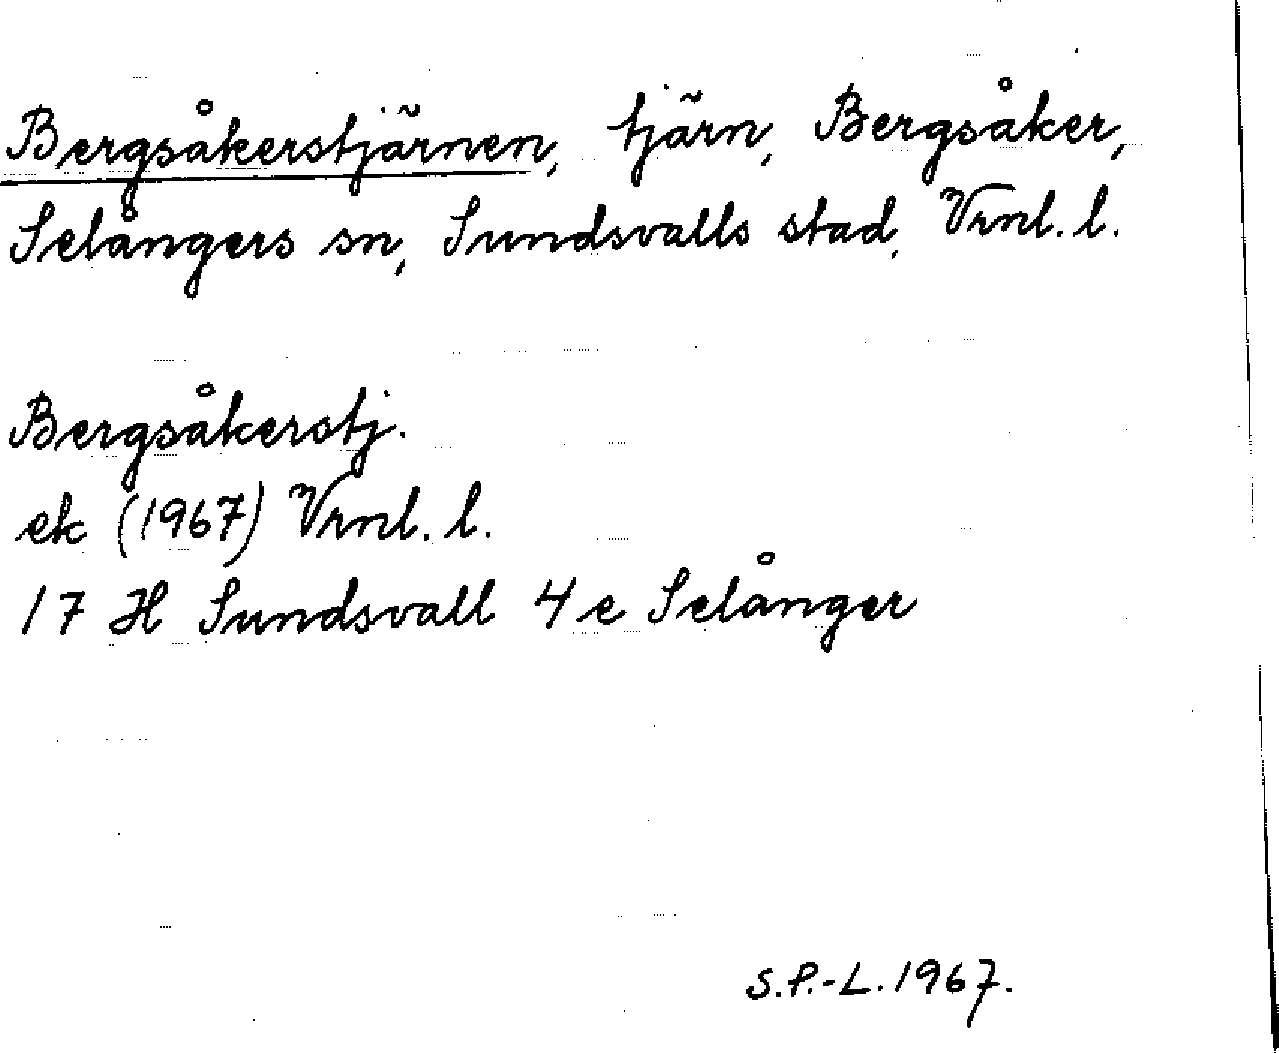 Bergsåkerstjärnen, tjärn, Bergsåker,
Selångers sn, Sundsvalls stad, Vrnl. l.
Bergsåkerstj.
ek (1967) Vrnl. l.
17 H Sundsvall 4 e Selånger
S.P.-L. 1967.